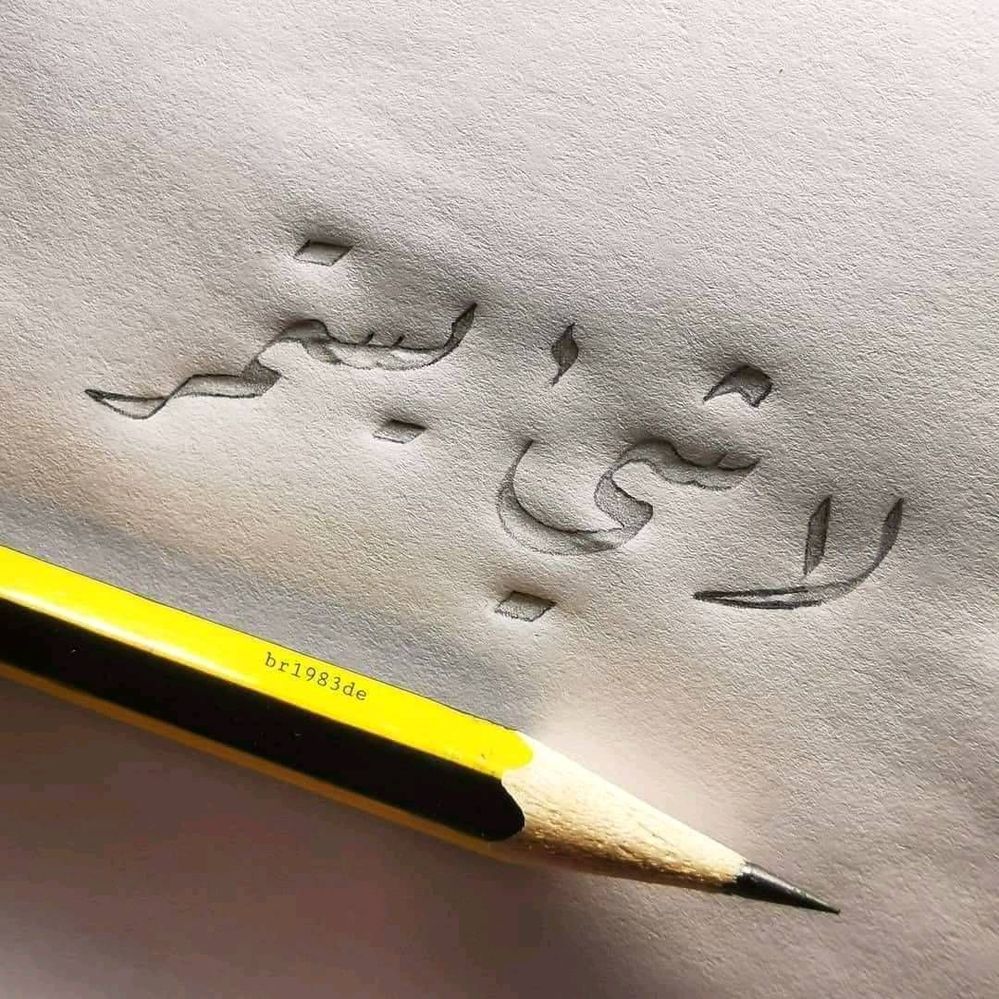 لا شيء يستمر
br1983de